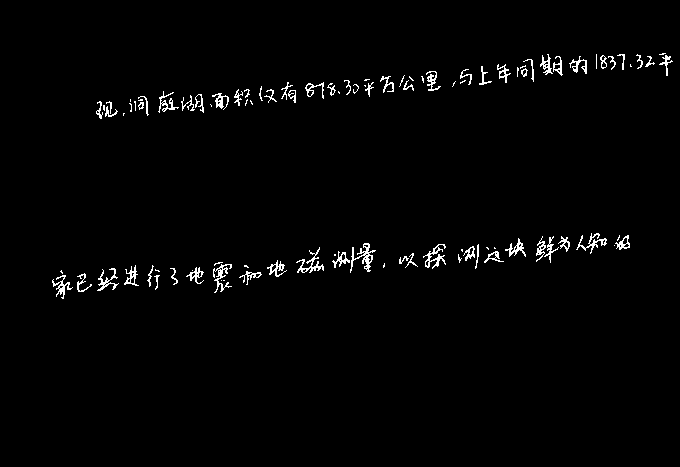 现,洞庭湖面积仅有878.30平方公里,与上年同期的1837.32平
家已经进行了地震和地磁测量,以探测这块鲜为人知的